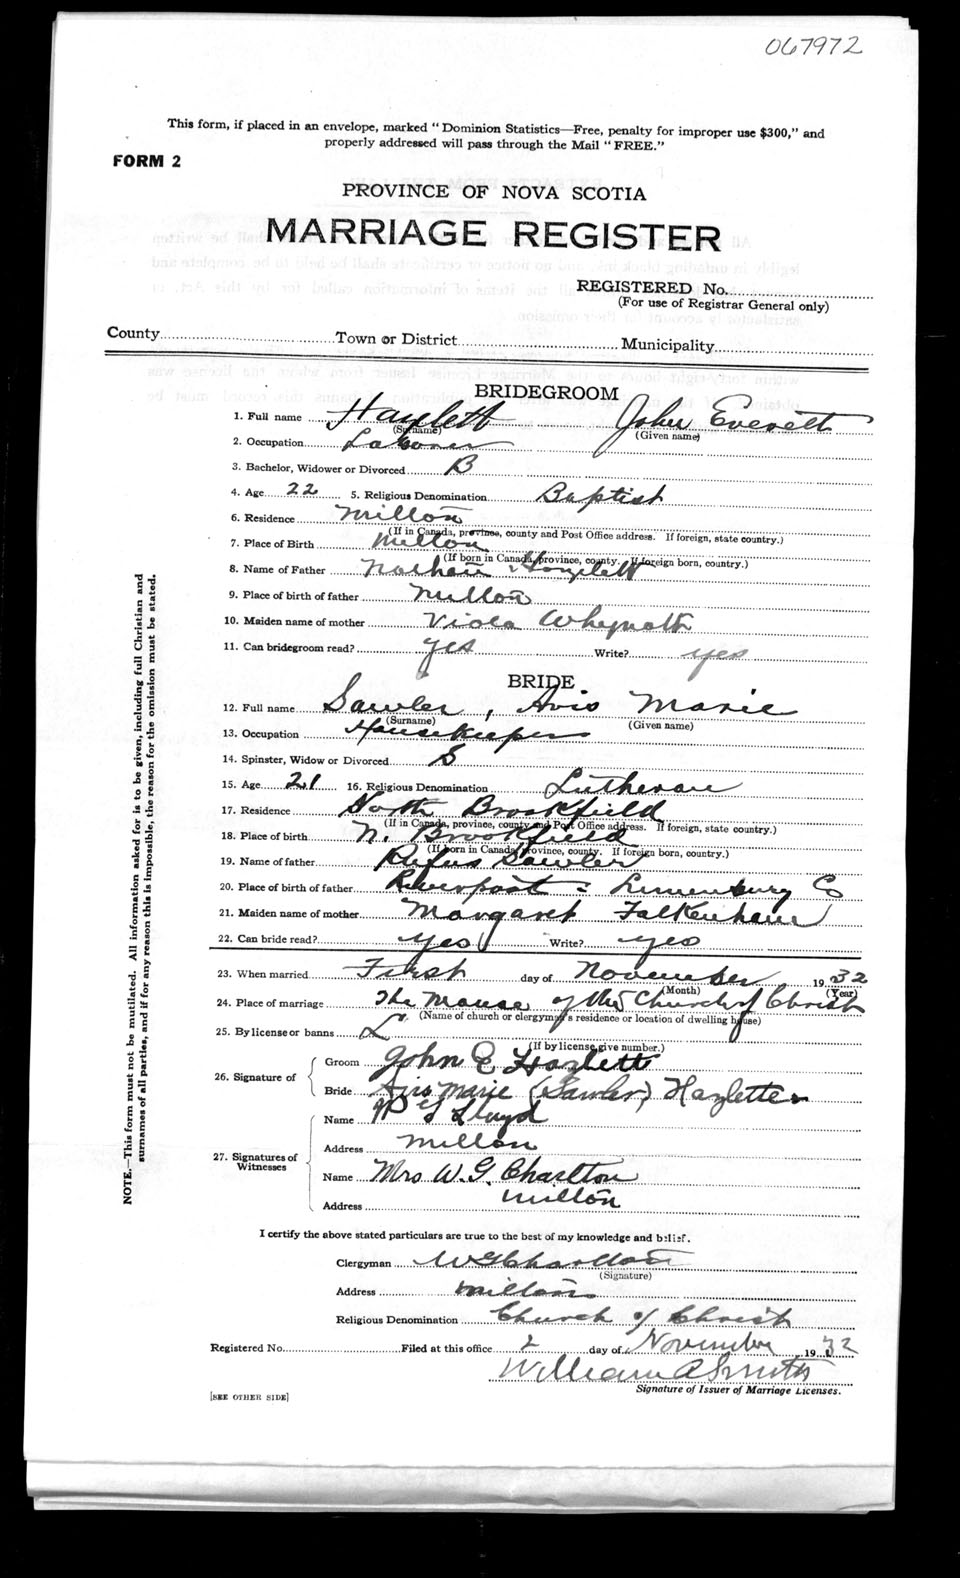 067972
This form, if placed in an envelope, marked "Dominion Statistics—Free, penalty for improper use $300," and
properly addressed will pass through the Mail "FREE."
FORM 2
PROVINCE OF NOVA SCOTIA
MARRIAGE REGISTER
REGISTERED No.
(For use of Registrar General only)
County Town or District Municipality
BRIDEGROOM
1. Full name Hazlett John Everett
(Surname) (Given name)
2. Occupation Laborer
3. Bachelor, Widower or Divorced B
4. Age 22 5. Religious Denomination Baptist
6. Residence Milton
(If in Canada, province, county and Post Office address. If foreign, state country.)
7. Place of Birth Milton
(If born in Canada, province, county. If foreign born, country.)
8. Name of Father Nathan Hazlett
9. Place of birth of father Milton
10. Maiden name of mother Viola Whynott
11. Can bridegroom read? yes Write? yes
BRIDE
12. Full name Sawler, Avis Marie
(Surname) (Given name)
13. Occupation Housekeeper
14. Spinster, Widow or Divorced S
15. Age 21 16. Religious Denomination Lutheran
17. Residence North Brookfield
(If in Canada, province, county and Post Office address. If foreign, state country.)
18. Place of birth N. Brookfield
(If born in Canada province, county. If foreign born, country.)
19. Name of father Rufus Sawler
20. Place of birth of father Riverport = Lunenburg Co
21. Maiden name of mother Margaret Falkenham
22. Can bride read? yes Write? yes
23. When married First day of November 1932
(Month) (Year)
24. Place of marriage The Manse of the Church of Christ
(Name of church or clergyman's residence or location of dwelling house)
25. By license or banns L
(If by license, give number.)
26. Signature of Groom John E Hazlett
Bride Avis Marie (Sawler) Hazlette
27. Signatures of Witnesses
Name Lloyd
Address Milton
Name Mrs W. G. Charlton
Address Milton
I certify the above stated particulars are true to the best of my knowledge and belief.
Clergyman W G Charlton
(Signature)
Address Milton
Religious Denomination Church of Christ
Registered No. Filed at this office 2 day of November 1932
William A Smith
Signature of Issuer of Marriage Licenses.
[SEE OTHER SIDE]
NOTE.—This form must not be mutilated. All information asked for is to be given, including full Christian and
surnames of all parties, and if for any reason this is impossible, the reason for the omission must be stated.